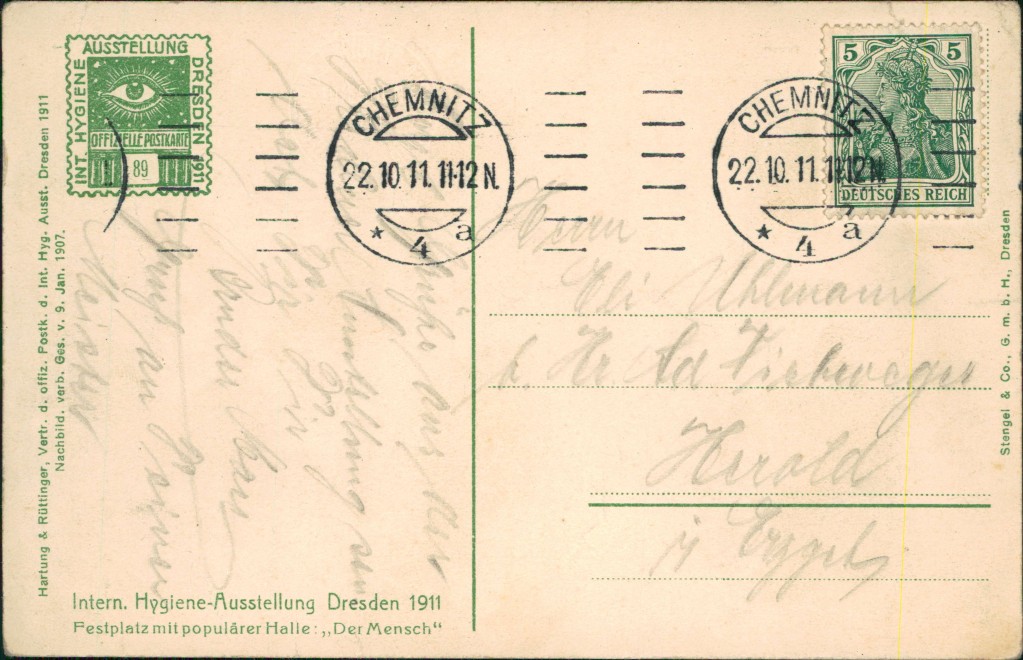 AUSSTELLUNG
INT. HYGIENE
DRESDEN 1911
OFFIZIELLE POSTKARTE
89
Hartung & Rüttinger, Vertr. d. offiz. Postk. d. Int. Hyg. Ausst. Dresden 1911
Nachbild. verb. Ges. v. 9. Jan. 1907.
CHEMNITZ
22.10.11.11-12 N.
* 4 a
CHEMNITZ
22.10.11.11-12 N.
* 4 a
5 5
DEUTSCHES REICH
Grüße aus der
Ausstellung
Bruder
Gruß an Deinen
Meister
Herrn
Uhlmann
b. Hr. Ad
Herold
i/ Erzgeb
Intern. Hygiene-Ausstellung Dresden 1911
Festplatz mit populärer Halle: „Der Mensch"
Stengel & Co., G. m. b. H., Dresden